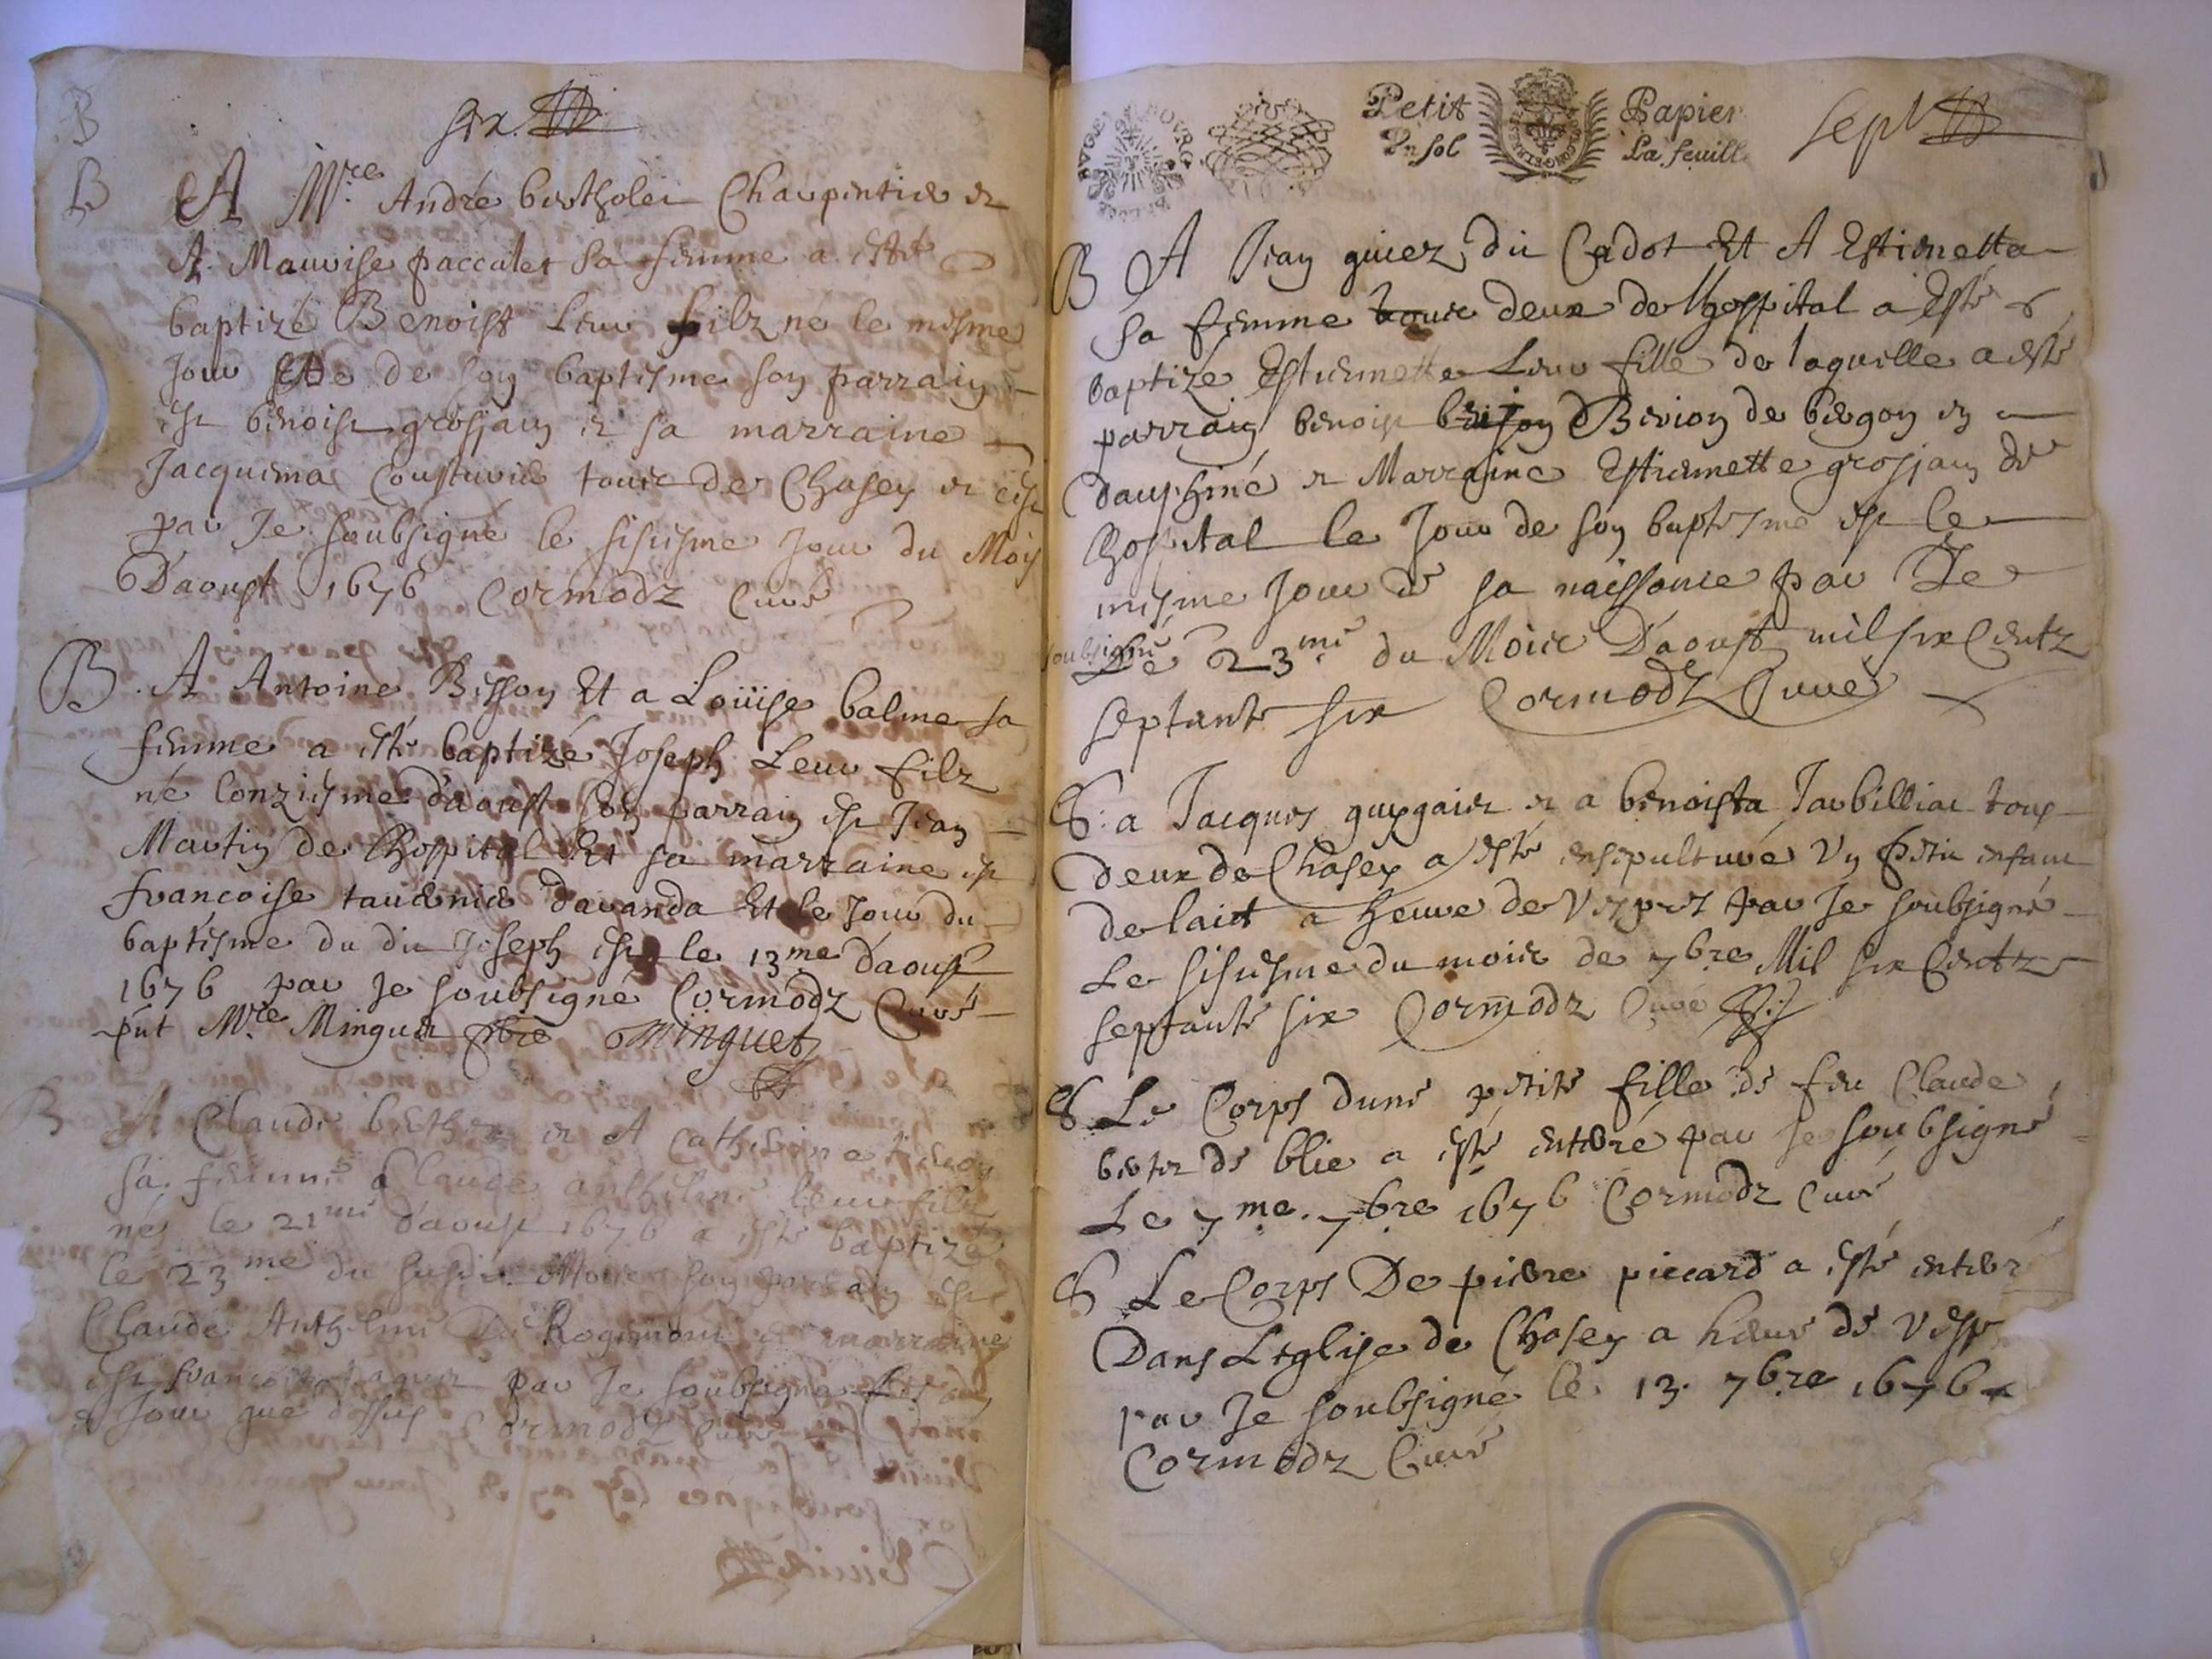 six
B
B
A Mre André bertholet Charpentier et
A Mauvise paccalet sa femme a esté
baptizé Benoist Leur filz né le mesme
Jour de son baptisme son parrain
est benoist grosjean et sa marraine
Jacquema Cousturier touts de Chasey et c'est
par Je soubsigné le sisiesme Jour du Mois
D'aoust 1676 Cormodz Curé
B. A Antoine Bisson Et a Loüise balme sa
femme a esté baptizé Joseph Leur filz
né lonziesme d'aoust son parrain est Jean
Martin de Lhospital Et sa marraine est
francoise tavernier davanda Et le Jour du
baptisme du dit Joseph est le 13me d'aoust
1676 par Je soubsigné Cormodz Curé
pnt Mre Minguet pbre Minguet
B A Claude berthet et A Catherine
sa femme Claude anthelme leur filz
né le 21me d'aoust 1676 a esté baptizé
le 23me du susdit Mois son parrain est
Claude Anthelme De Rogemont et marraine
est francoise par Je soubsigné Les an
et Jour que dessus Cormodz Curé
BAUGE BOURG
Petit Papier
Un sol La feuille
sept
B A Jean guiez dit Cadot Et A Estienetta
sa femme touts deux de Lhospital a Esté
baptizé Estiennette Leur fille de laquelle a esté
parrain benoist Berion de bergon en
dauphiné et Marraine Estiennette grosjean de
Lhospital le Jour de son baptesme est le
mesme Jour de sa naissance par Je
soubsigné Le 23me du Mois D'aoust mil six Centz
septante six Cormodz Curé
S. a Jacques guygaiet et a benoista Jarbilliat tous
deux de Chasey a esté ensepulturé Un petit enfant
de lait a heure de Vespres par Je soubsigné
Le sisiesme du mois de 7bre Mil six Centz
septante six Cormodz Curé
S Le Corps dune petite fille de feu Claude
berter de blie a esté enterré par Je soubsigné
Le 7me. 7bre 1676 Cormodz Curé
S Le Corps De pierre piccard a esté enterré
Dans Leglise de Chasey a heure de Vesp
par Je soubsigné le 13. 7bre 1676
Cormodz Curé